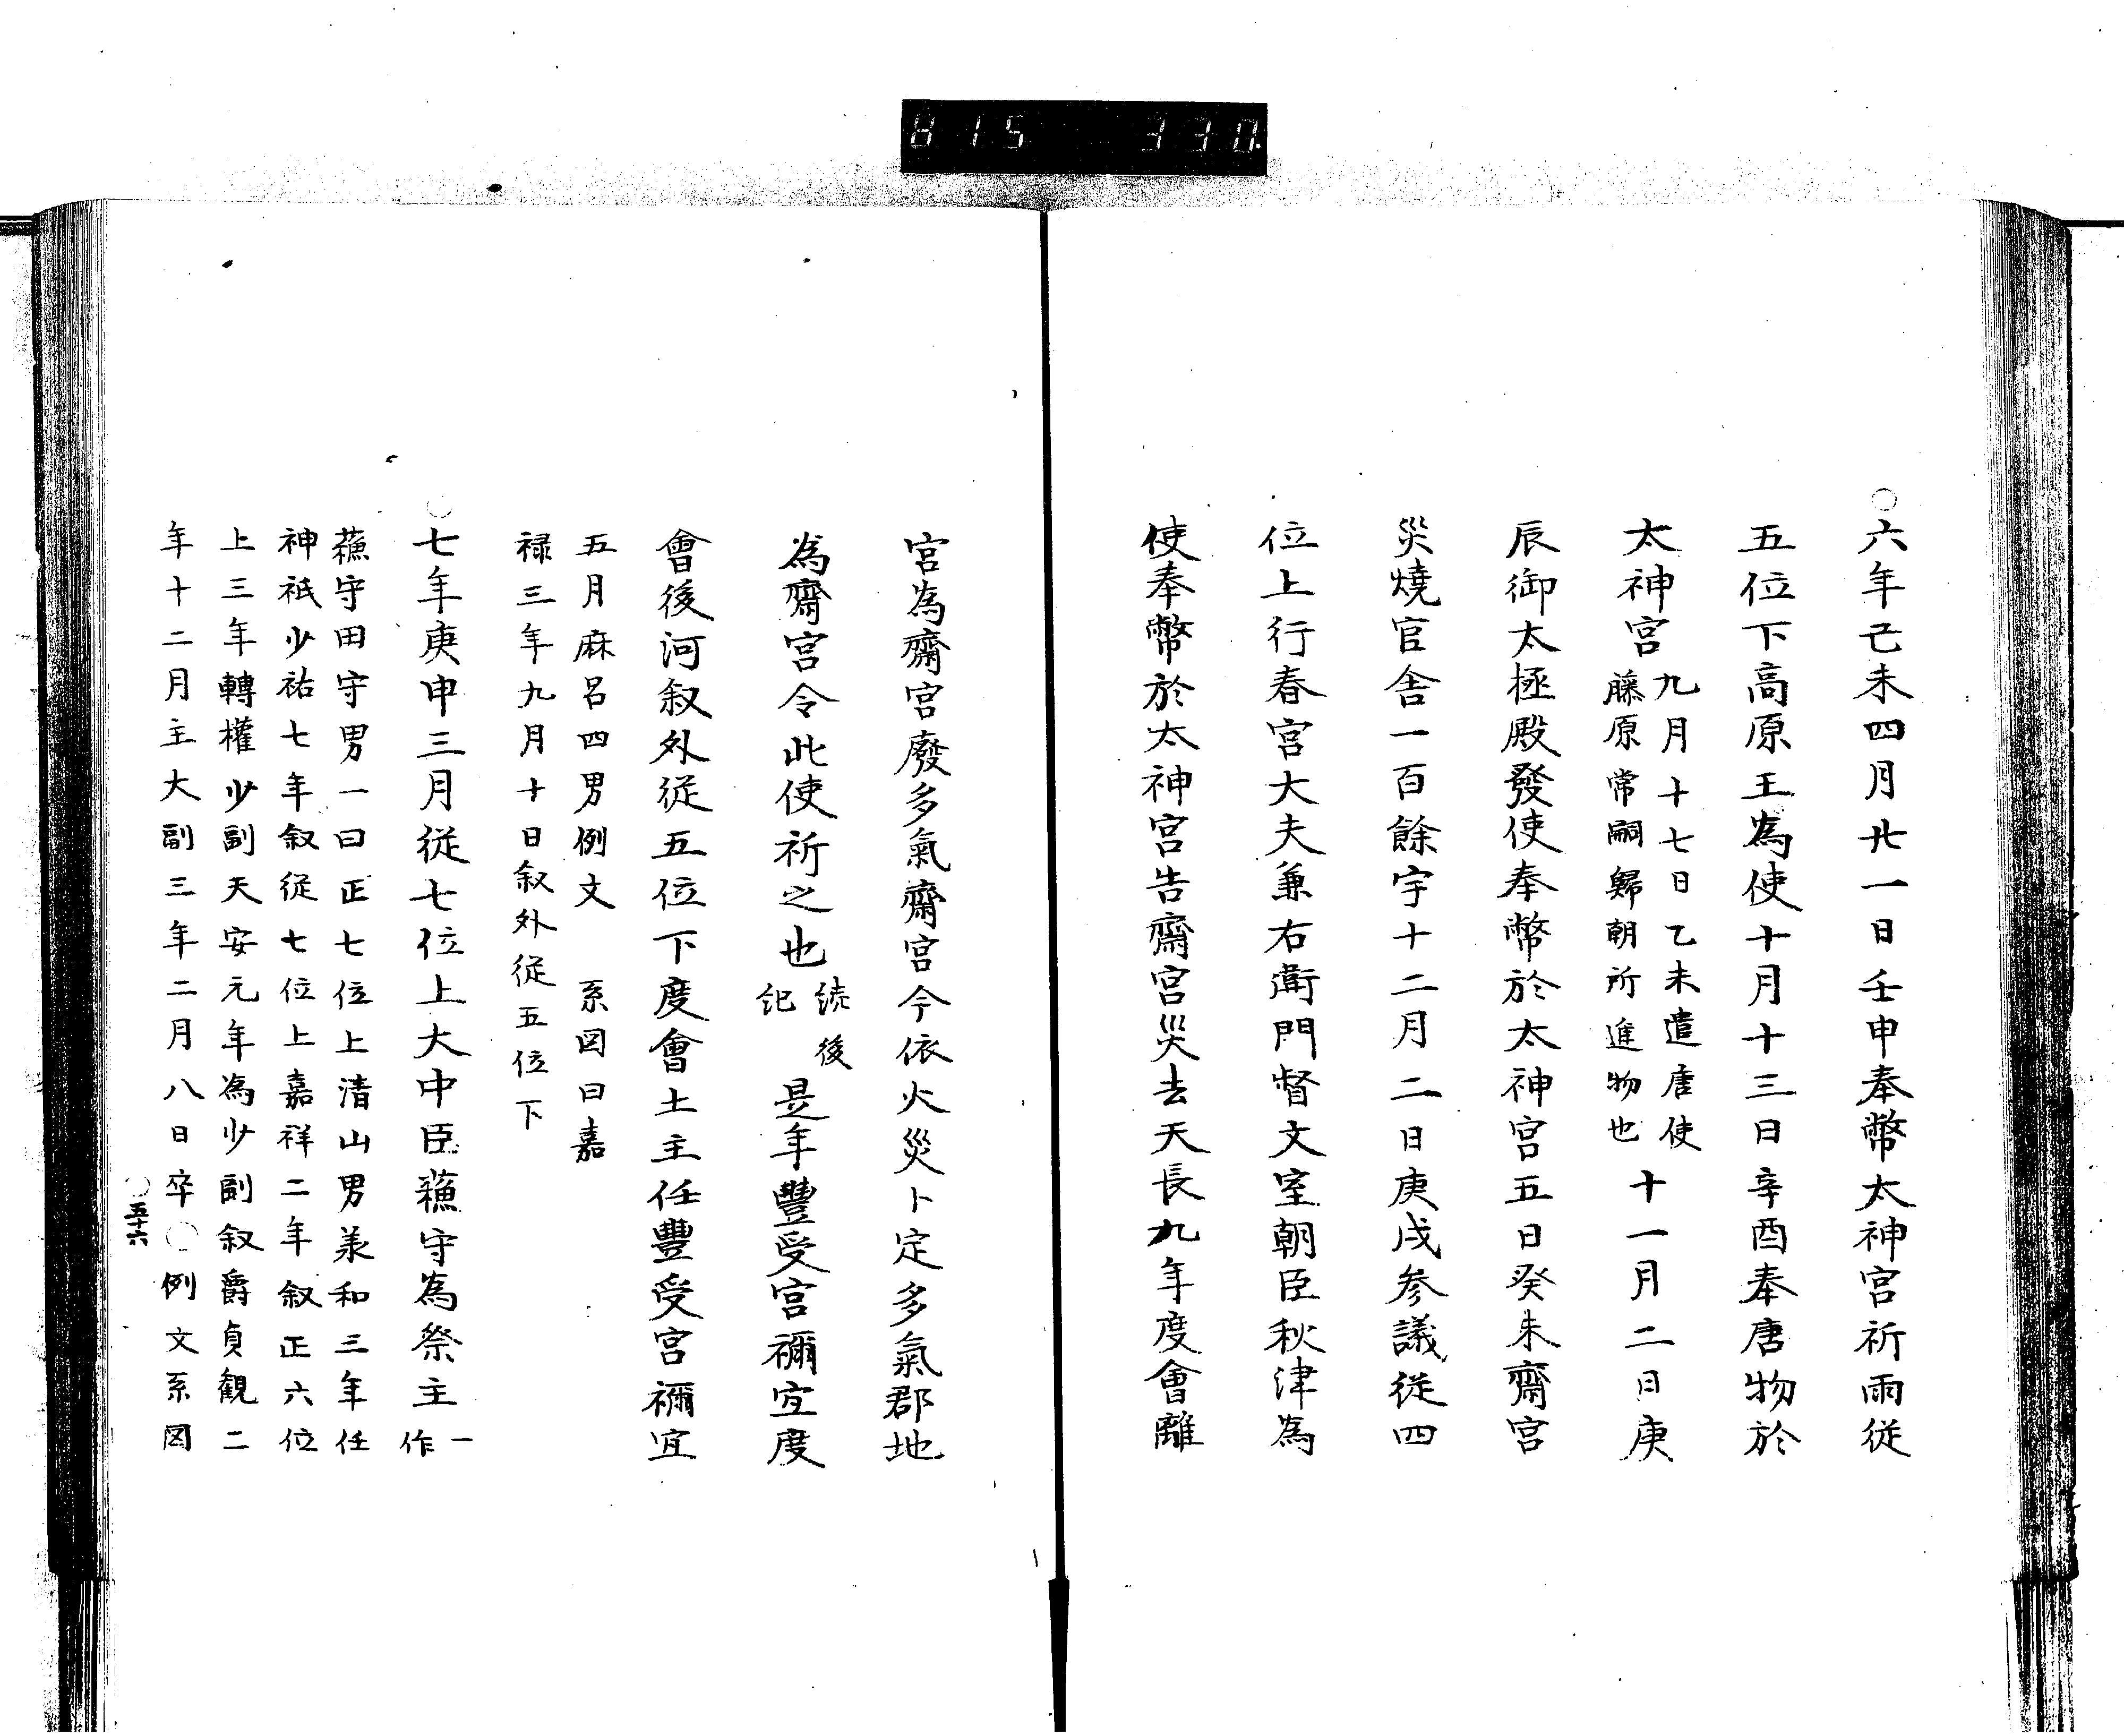 815 330
○六年己未四月廿一日壬申奉幣太神宮祈雨従
五位下高原王為使十月十三日辛酉奉唐物於
太神宮
九月十七日乙未遣唐使
藤原常嗣歸朝所進物也
十一月二日庚
辰御太極殿發使奉幣於太神宮五日癸未齋宮
災燒官舎一百餘宇十二月二日庚戌参議従四
位上行春宮大夫兼右衛門督文室朝臣秋津為
使奉幣於太神宮告齋宮災去天長九年度會離
宮為齋宮廢多氣齋宮今依火災卜定多氣郡地
為齋宮令此使祈之也
続後
紀
是年豐受宮禰宜度
會後河叙外従五位下度會土主任豐受宮禰宜
五月麻呂四男例文 系図曰嘉
禄三年九月十日叙外従五位下
○七年庚申三月従七位上大中臣蘓守為祭主
一
作
蘓守田守男一曰正七位上清山男羕和三年任
神祇少祐七年叙従七位上嘉祥二年叙正六位
上三年轉權少副天安元年為少副叙爵貞観二
年十二月主大副三年二月八日卒○例文系図
○五十六